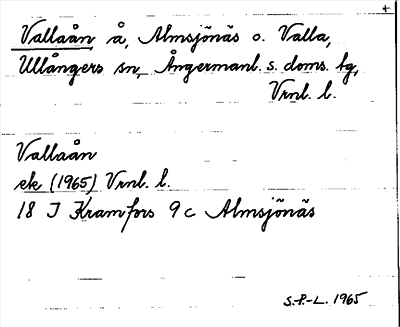 +
Vallaån å, Almsjönäs o. Valla,
Ullångers sn, Ångermanl. s. doms. tg,
Vrnl. l.
Vallaån
ek (1965) Vrnl. l.
18 J Kramfors 9 c Almsjönäs
S.P.-L. 1965